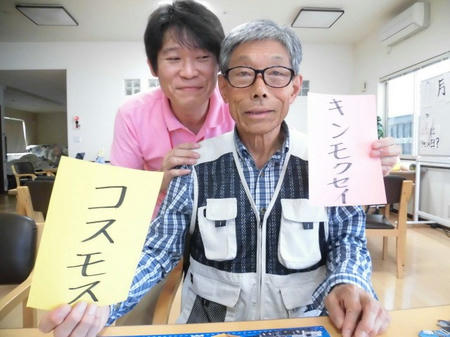 コスモス
キンモクセイ
月